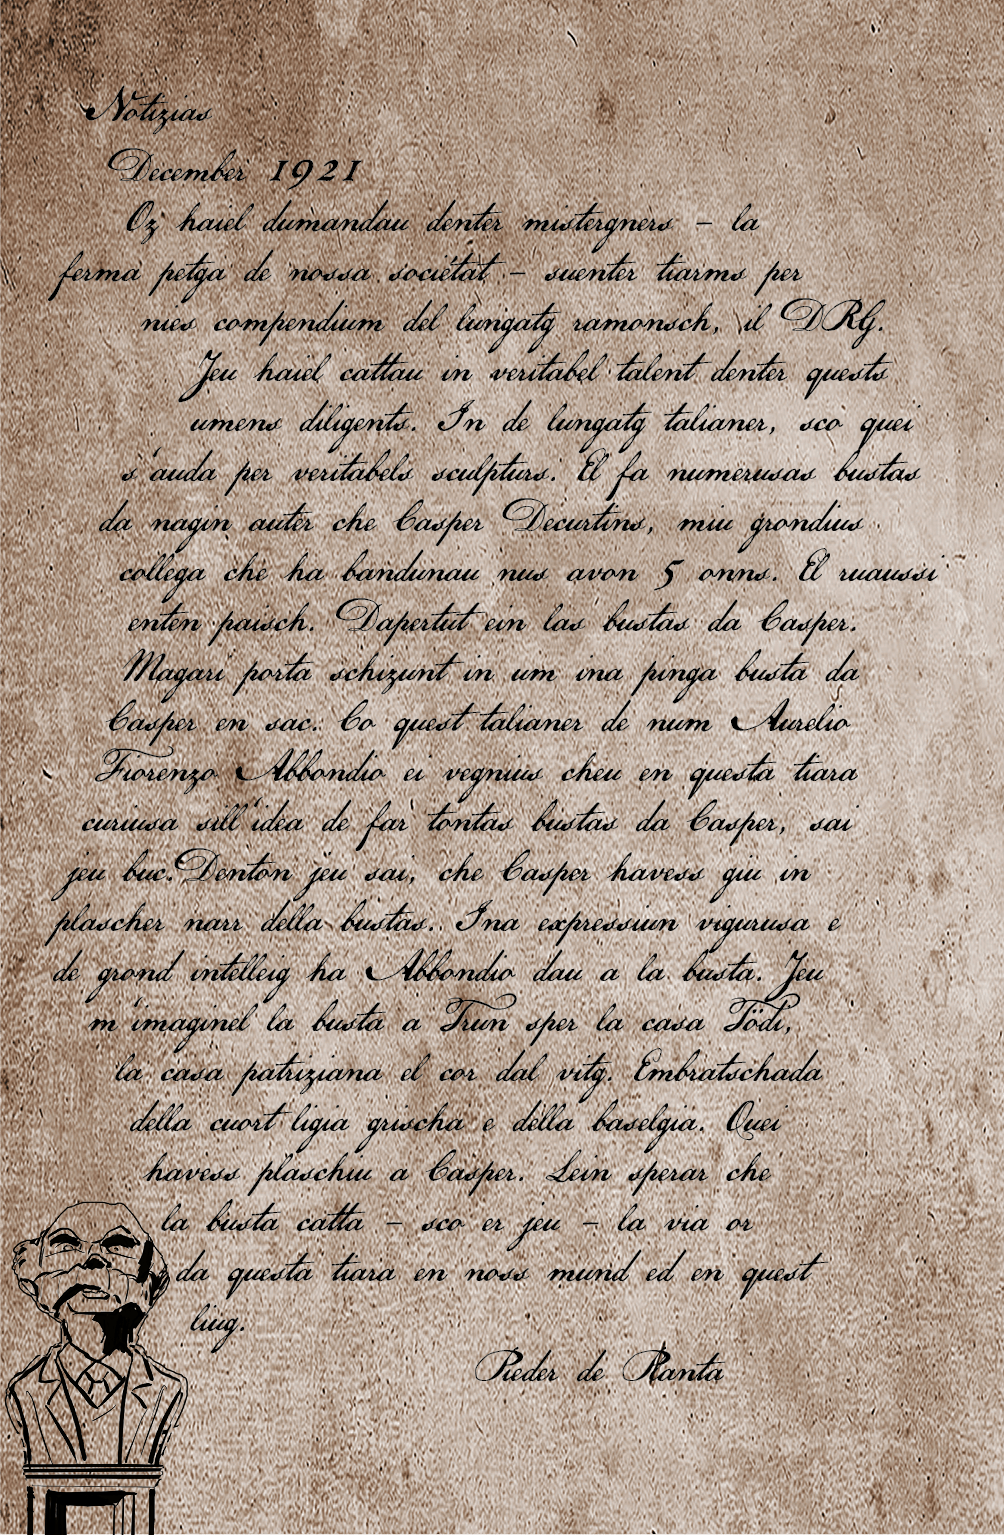 Notizias
December 1921
Oz haiel dumandau denter mistergners – la
ferma petga de nossa societat – suenter tiarms per
nies compendium del lungatg ramonsch, il DRG.
Jeu haiel cattau in veritabel talent denter quests
umens diligents. In de lungatg talianer, sco quei
s'auda per veritabels sculpturs. El fa numerusas bustas
da nagin auter che Casper Decurtins, miu grondius
collega che ha bandunau nus avon 5 onns. El ruaussi
enten paisch. Dapertut ein las bustas da Casper.
Magari porta schizunt in um ina pinga busta da
Casper en sac. Co quest talianer de num Aurelio
Fiorenzo Abbondio ei vegnius cheu en questa tiara
curiusa sill'idea de far tontas bustas da Casper, sai
jeu buc. Denton jeu sai, che Casper havess giu in
plascher narr della bustas. Ina expressiun vigurusa e
de grond intelleig ha Abbondio dau a la busta. Jeu
m'imaginel la busta a Trun sper la casa Tödi,
la casa patriziana el cor dal vitg. Embratschada
della cuort ligia grischa e della baselgia. Quei
havess plaschiu a Casper. Lein sperar che
la busta catta – sco er jeu – la via or
da questa tiara en noss mund ed en quest
liug.
Pieder de Planta